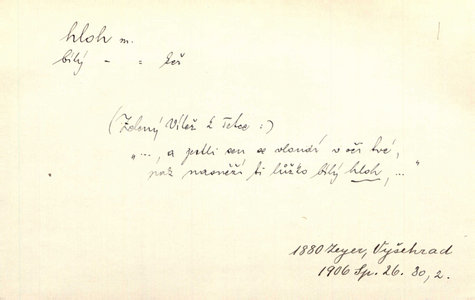 hloh m.
bílý - = keř
(Zelený Vítěz k Tetce :)
"..., a jestli sen se vloudí v oči tvé,
nať nasněží ti lůžko bílý hloh, ..."
1880 Zeyer, Vyšehrad
1906 Sp. 26. 30, 2.